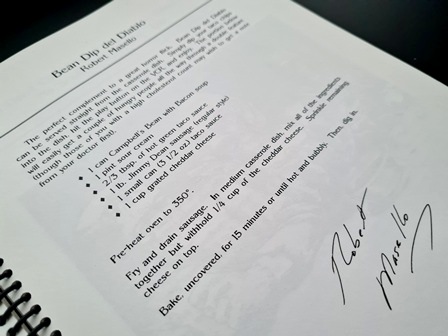 Bean Dip del Diablo
Robert Masello
The perfect complement to a great horror flick, Bean Dip del Diablo
can be served straight from the casserole dish. Simply dip your taco chips
into the dish, hit the play button on the VCR, and enjoy. The portion below
will easily get a couple of hungry people all the way through a double feature
(though those of you with a high cholesterol count may wish to get a note
from your doctor first).
◆ 1 can Campbell's Bean with Bacon soup
◆ 1 pint sour cream
◆ 2/3 tbsp. of hot green taco sauce
◆ 1 lb. Jimmy Dean sausage (regular style)
◆ 1 small can (3 1/2 oz) taco sauce
◆ 1 cup grated cheddar cheese
Pre-heat oven to 350°.
Fry and drain sausage. In medium casserole dish, mix all of the ingredients
together but withhold 1/4 cup of the cheddar cheese. Sprinkle remaining
cheese on top.
Bake, uncovered, for 15 minutes or until hot and bubbly. Then dig in.
Robert
Masello